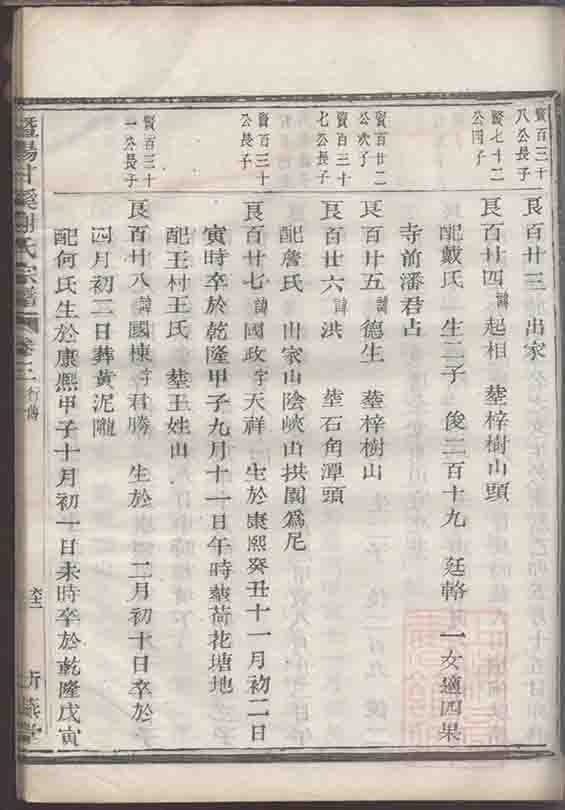 賢百三十
八公長子
良百廿三　出家
賢七十二
公四子
良百廿四 諱 起相　塟梓樹山頭
配戴氏　生二子　俊二百十九　廷輅　一女適四果
寺前潘君占
賢百廿二
公次子
良百廿五 諱 德生　塟梓樹山
賢百三十
七公長子
良百廿六 諱 洪　塟石角潭頭
配詹氏　山家山陰峽山拱園爲尼
賢百三十
公長子
良百廿七 諱 國政 字 天祥　生於康熙癸丑十一月初二日
寅時卒於乾隆甲子九月十一日午時塟荷花塘地
配王村王氏　塟王姓山
賢百三十
一公長子
良百廿八 諱 國棟 字 君勝　生於　二月初十日卒於
四月初二日葬黃泥隴
配何氏生於康熙甲子十月初一日未時卒於乾隆戊寅
暨陽甘溪謝氏宗譜 卷三 行傳